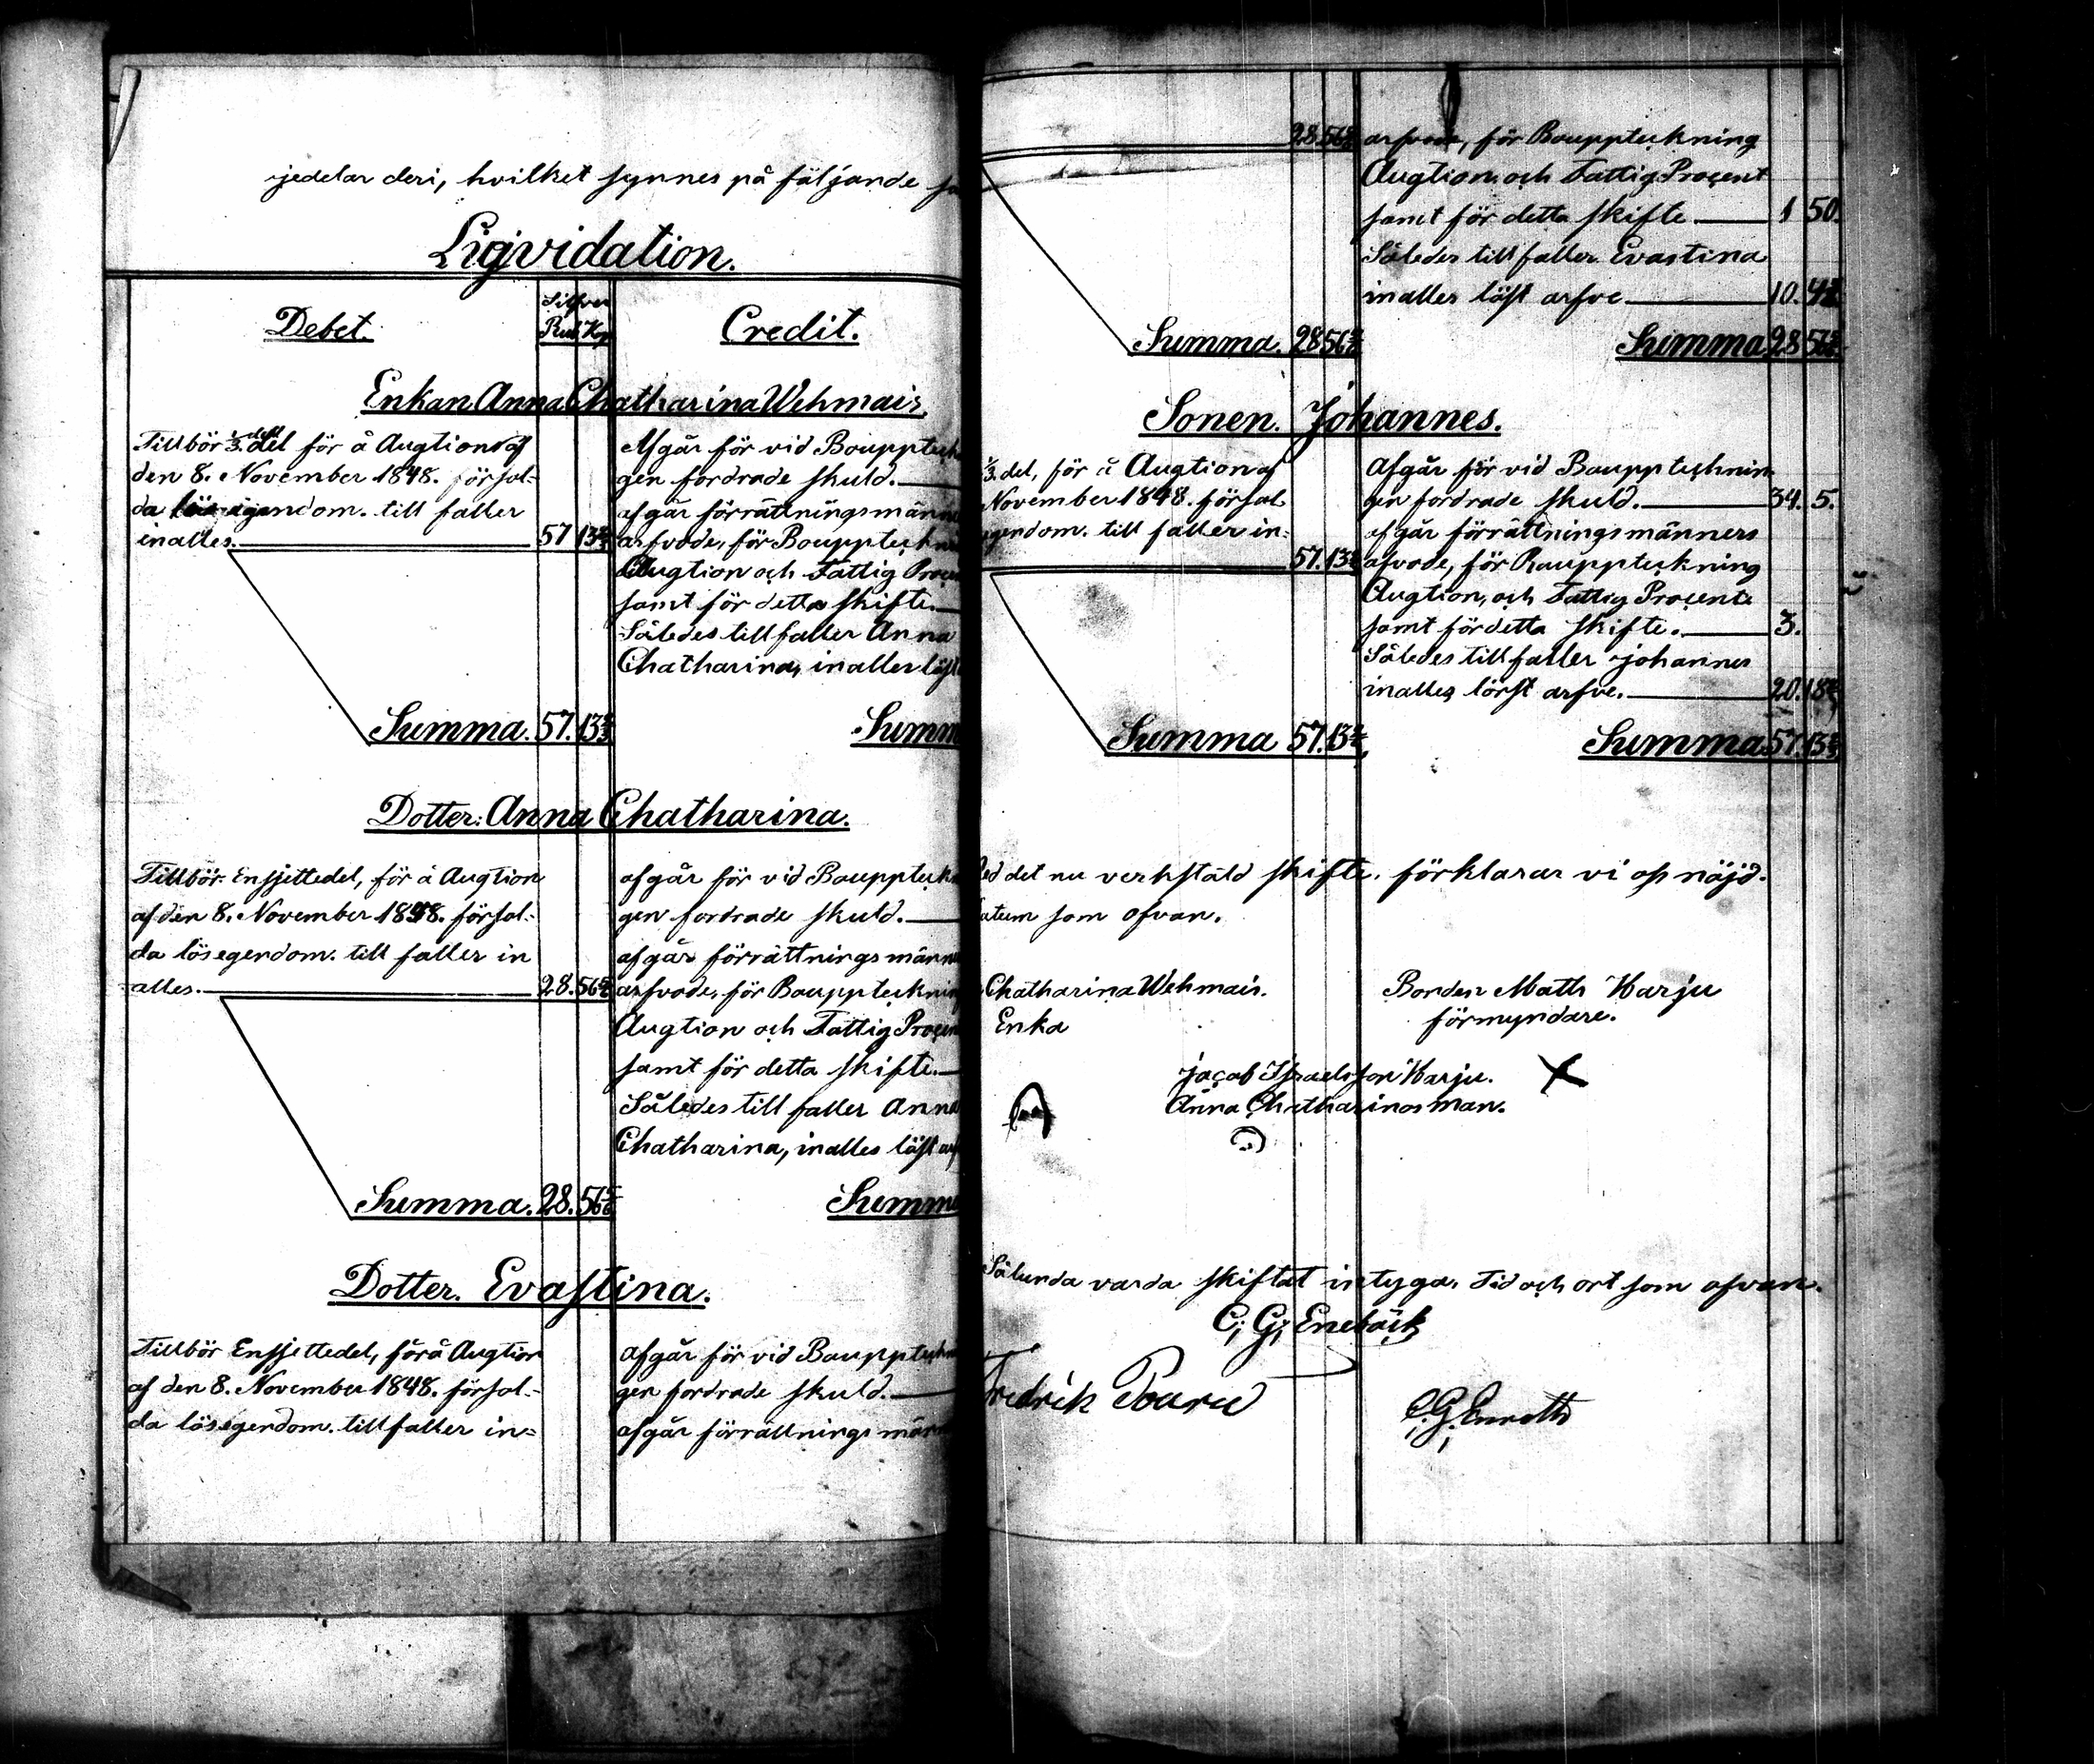 sjedelar deri, hvilket synnes på fäljande
Liqvidation.
Debet. Silfver Rub Kop Credit.
Enkan Anna Chatharina Wehmais.
Tillbör 1/3 del för å Augtion af
den 8. November 1848. försol-
da lösegendom. till faller
inalles. 57 13 2/3
Afgår för vid Bouppteck
gen fordrade skuld.
afgår förrättningsmänn
arfvode, för Boupptecknin
Augtion och Fattig Procen
samt för detta skifte.
Således till faller Anna
Chatharina, inalles läst
Summa. 57. 13 2/3 Summ
Dotter. Anna Chatharina.
Tillbör Ensjettedel, för å Augtion
af den 8. November 1848. försol-
da lösegendom. till faller in
alles. 28. 56 5/6
afgår för vid Bouppteck
gen fordrade skuld.
afgår förrättningsmänn
arfvode, för Boupptecknin
Augtion och Fattig Procen
samt för detta skifte.
Således till faller Anna
Chatharina, inalles läst arf
Summa. 28. 56 5/6 Summa
Dotter. Evastina.
Tillbör Ensjettedel, för å Augtion
af den 8. November 1848. försol-
da lösegendom. till faller in=
afgår för vid Boupptechn
gen fordrade skuld.
afgår förrättnings männ
28 56 5/6
arfvode, för Bouppteckning
Augtion, och Fattig Procent
samt för detta skifte 1 50.
Således till faller Evastina
inalles läst arfve 10.
Summa. 28 56 5/6 Summa 28 56 5/6
Sonen. Johannes.
1/3 del, för å Augtion af
November 1848. försol
egendom. till faller in=
57. 13 2/3
Afgår för vid Boupptecknin
gen fordrade skuld. 34. 5.
afgår förrättningsmänners
afvode, för Bouppteckning
Augtion, och Fattig Procent
samt för detta skifte. 3.
Således till faller Johannes
inalles lörst arfve. 20. 18 2/3
Summa 57. 13 2/3 Summa 57. 13 2/3
Med det nu verkstäld skifte, förklarar vi oss nöjd.
Datum som ofvan.
Chatharina Wehmais.
Enka
Bonden Matts Harju
förmyndare.
Jacob Israelsson Harju.
Anna Chatharinas man.
Sålunda varda skiftat intyga. Tid och ort som ofvan.
C; G; Enebäck
Fredrik
C. G. Enroth